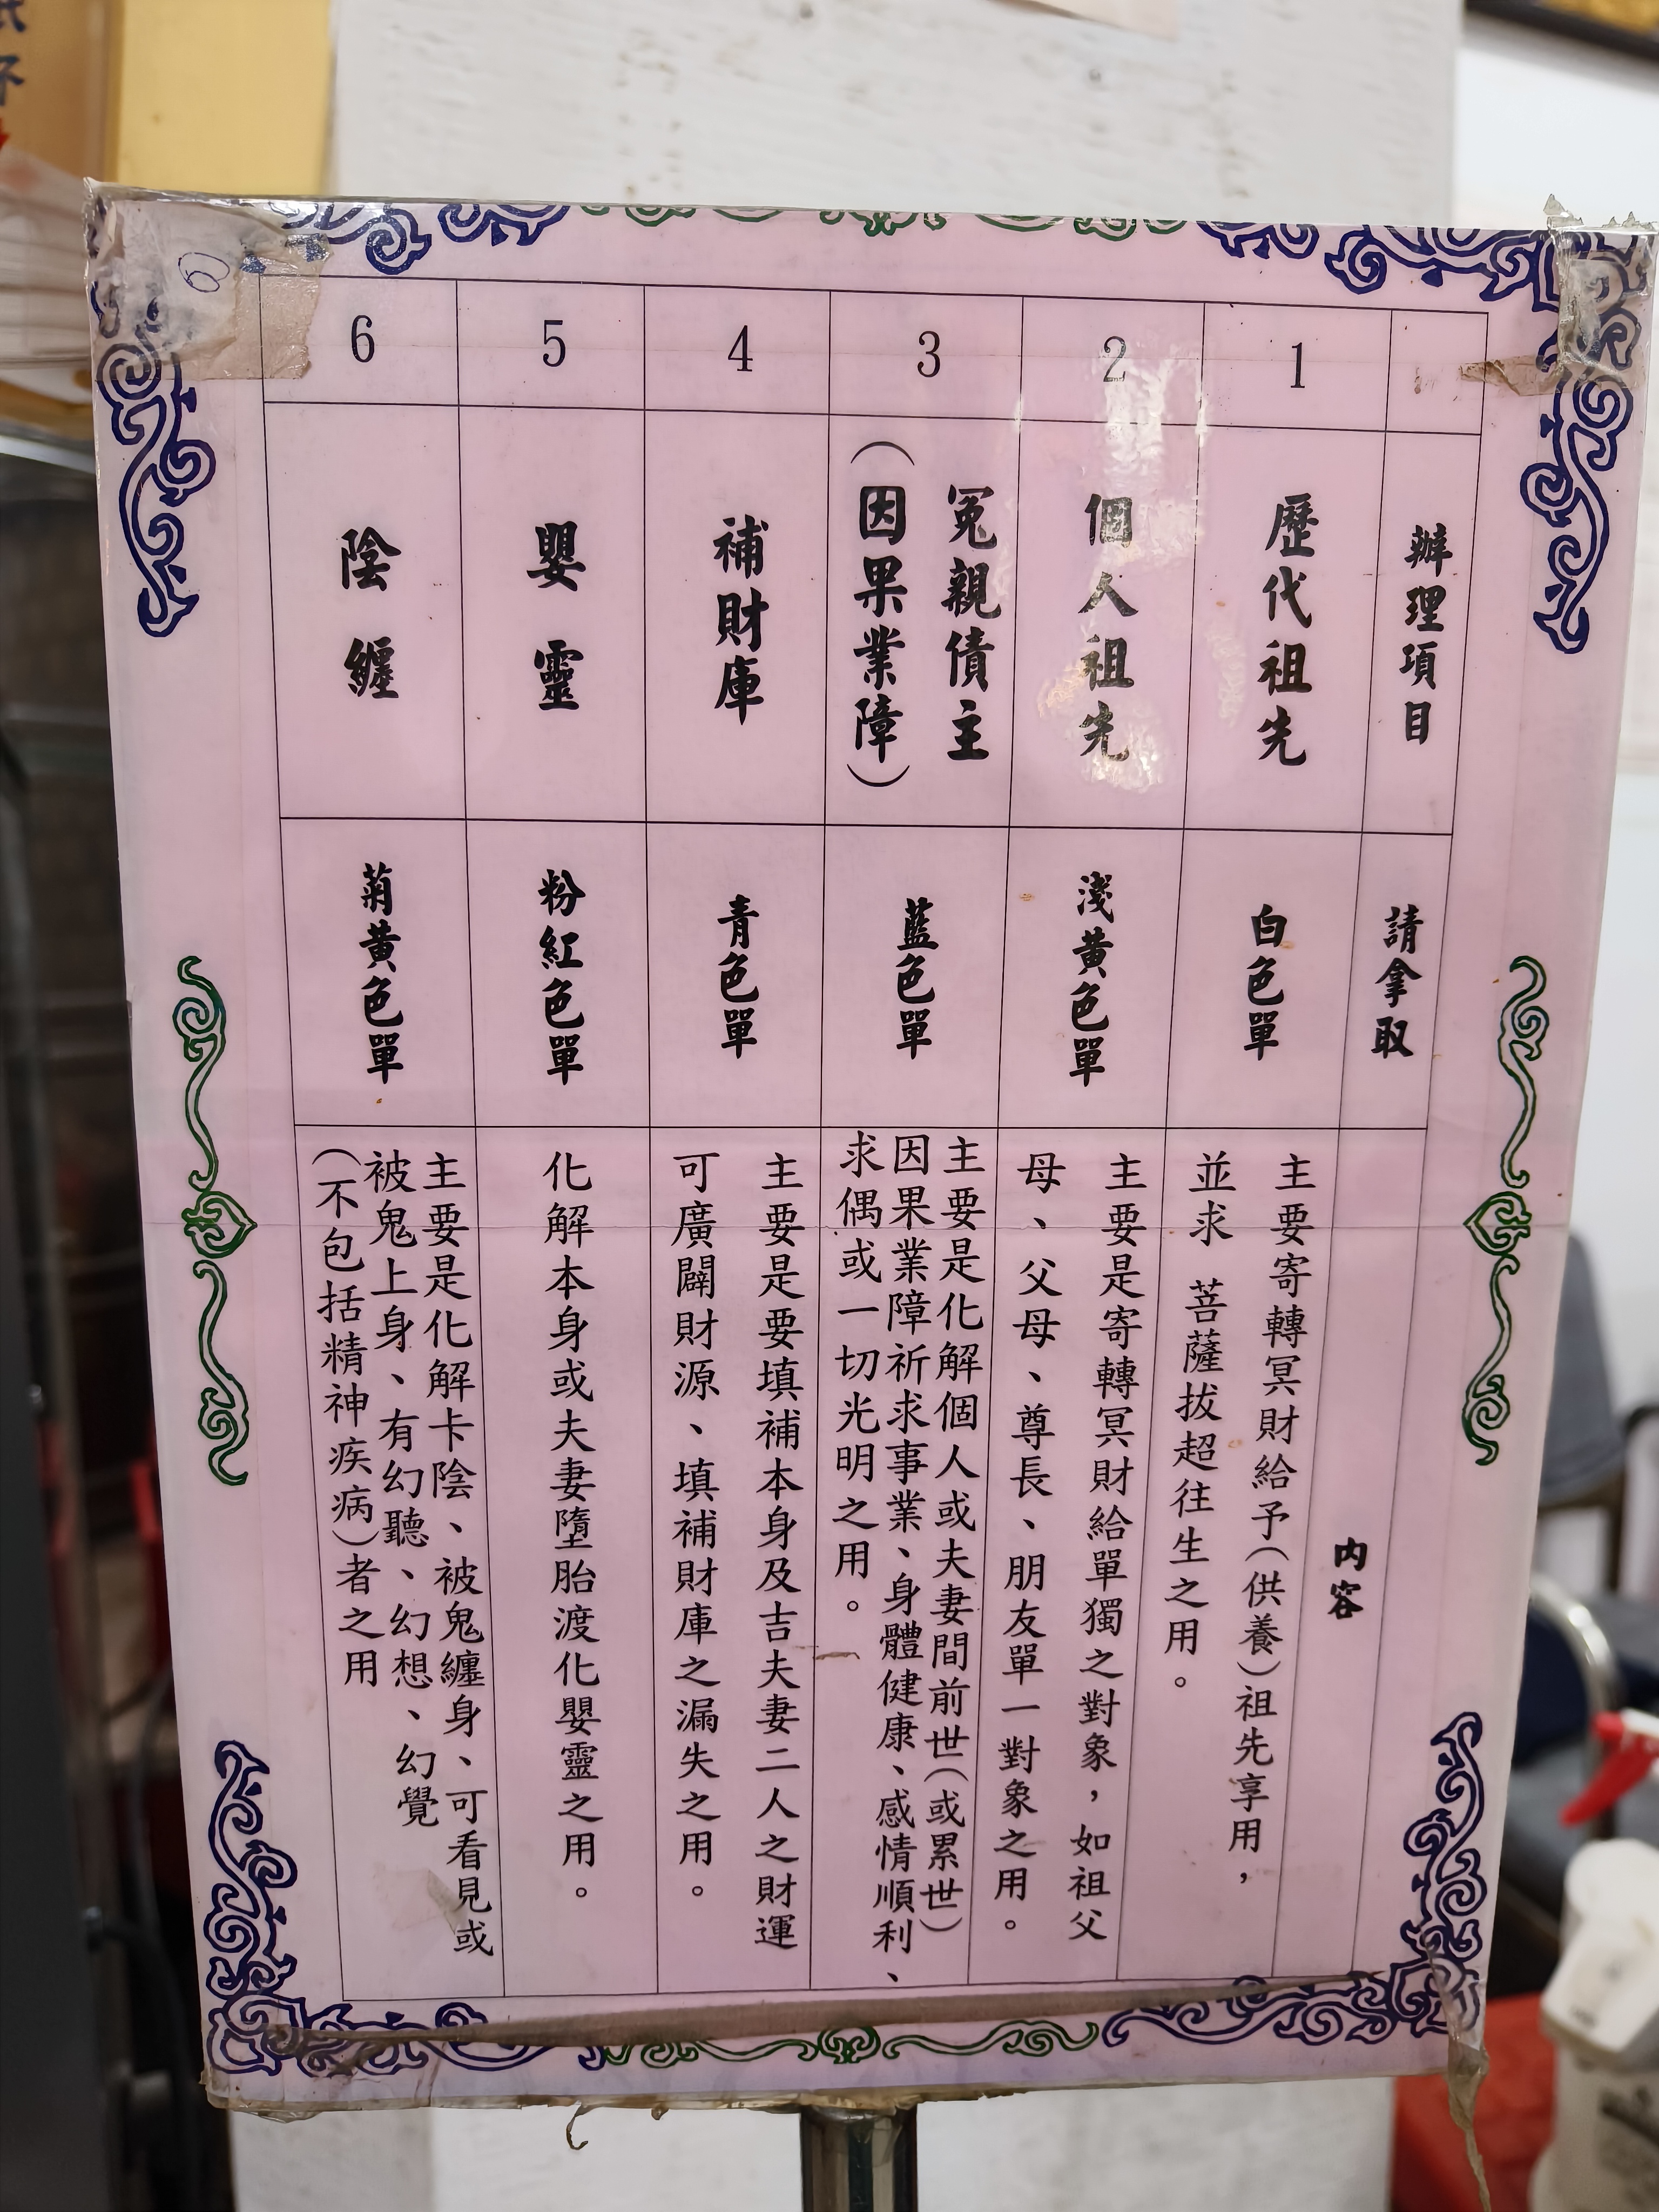 辦理項目
請拿取
內容
1
歷代祖先
白色單
主要寄轉冥財給予(供養)祖先享用，
並求 菩薩拔超往生之用。
2
個人祖先
淺黃色單
主要是寄轉冥財給單獨之對象，如祖父
母、父母、尊長、朋友單一對象之用。
3
冤親債主
(因果業障)
藍色單
主要是化解個人或夫妻間前世(或累世)
因果業障祈求事業、身體健康、感情順利、
求偶或一切光明之用。
4
補財庫
青色單
主要是要填補本身及吉夫妻二人之財運
可廣闢財源、填補財庫之漏失之用。
5
嬰靈
粉紅色單
化解本身或夫妻墮胎渡化嬰靈之用。
6
陰纏
菊黃色單
主要是化解卡陰、被鬼纏身、可看見或
被鬼上身、有幻聽、幻想、幻覺
(不包括精神疾病)者之用
6